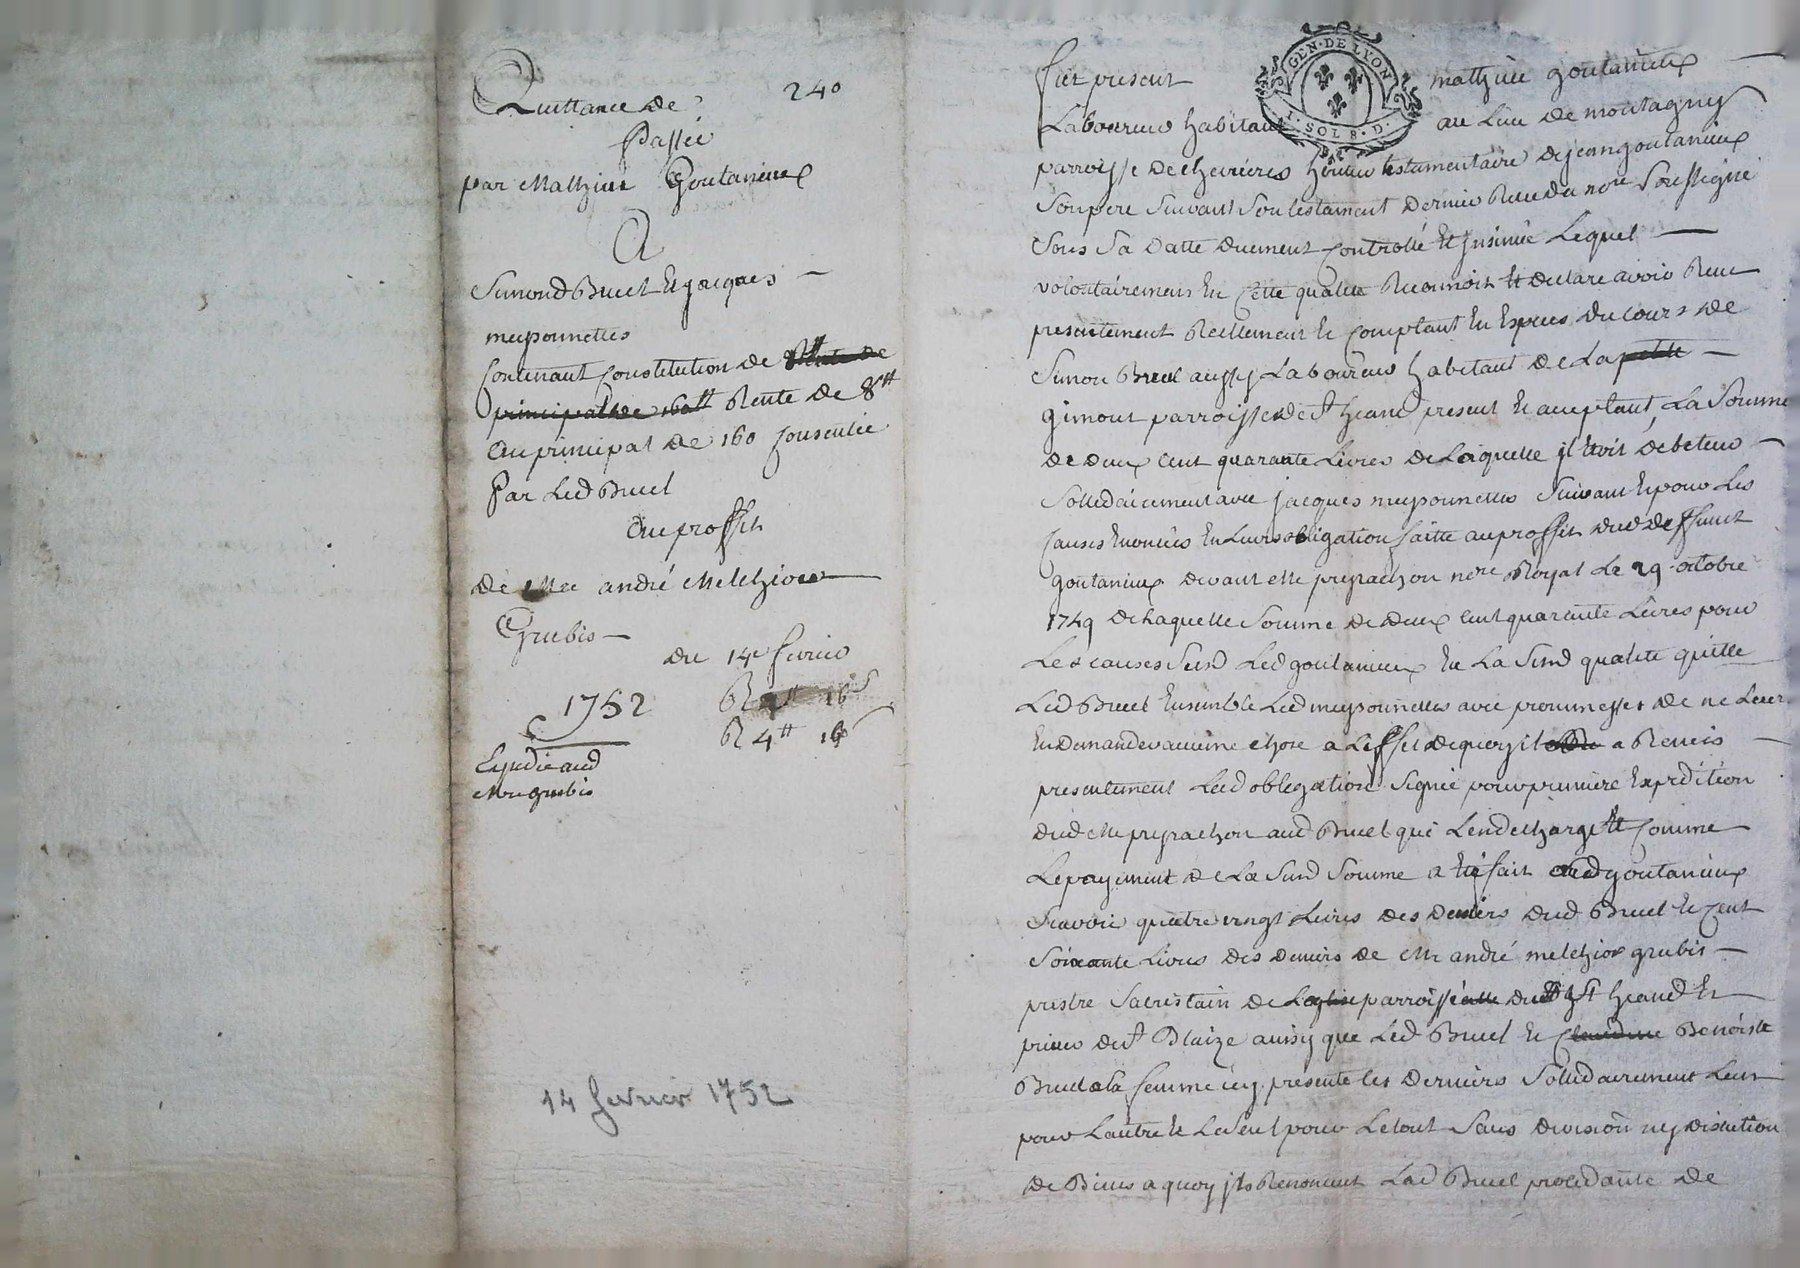 Quittance de 240
Passée
par Mathieu Goutanieux
A
Simond Bruel Et jacques
meysonnettes
Contenant constitution de
principal de 160ᵗᵗ Rente de 8ᵗᵗ
au principal de 160 consentie
Par Led Bruel
au proffit
de Mre andré Melchior
Grubis
du 14e fevrier
1752
R 4ᵗᵗ 16ˢ
Expedié aud
Mre grubis
14 fevrier 1752
GEN·DE LYON
1·SOL 8·D·
fut present mathieu goutanieux
Laboureur habitant au Lieu de montagny
parroisse de chevrieres heritier testamentaire de jean goutanieux
Son pere Suivant Son testament dernier Receu du nore Soussigné
Sous Sa datte duement controllé Et jnsinué Lequel
volontairement En Cette qualité Reconnoit Et declare avoir Receu
presentement Reellement Et comptant En Especes du cours de
Simon Bruel aussy Laboureur habitant de La petitte
gimont parroisse de St heand present Et acceptant, La Somme
de deux cent quarante Livres de Laquelle jl Etoit debiteur
Sollidairement avec jacques meysonnettes Suivant Et pour Les
causes Enoncées En Leurs obligation faitte au proffit dud deffunt
goutanieux devant Me peyrachon nore Royal Le 29 octobre
1749 de Laquelle Somme de deux cent quarante Livres pour
Les causes Susd Led goutanieux En La Susd qualité quitte
Led Bruel Ensemble Led meysonnettes avec prommesses de ne Leur
En demander aucune chose a L'effet de quoy jl a Remis
presentement Lad obligation Signée pour premiere Expedition
dud Me peyrachon aud Bruel qui L'en decharge Et comme
Le payement de La Susd Somme a Eté fait aud goutanieux
Scavoir quatre vingt Livres des deniers dud Bruel Et cent
Soixante Livres des deniers de Mre andré melchior grubis
prestre Sacristain de Leglise parroissialle dud St heand Et
prieur de St Blaize ainsy que Led Bruel Et Claudine Benoiste
Bruel sa femme jcy presente Les derniers Sollidairement L'un
pour L'autre Et Le Seul pour Le tout Sans division ny discution
de Biens a quoy jls Renoncent Lad Bruel procedante de